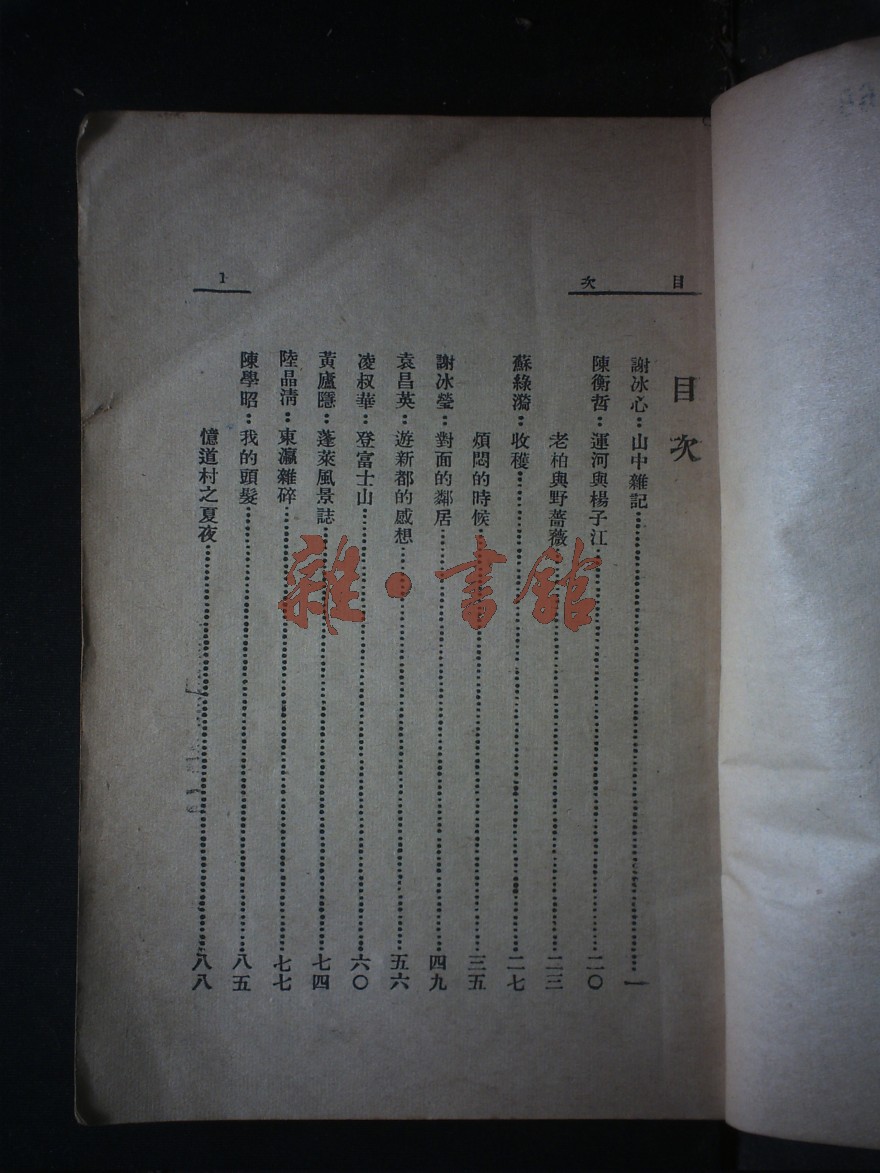 目次
1
目次
謝冰心：山中雜記……一
陳衡哲：運河與楊子江……二〇
老柏與野薔薇……二三
蘇綠漪：收穫……二七
煩悶的時候……三五
謝冰瑩：對面的鄰居……四九
袁昌英：遊新都的感想……五六
凌叔華：登富士山……六〇
黃廬隱：蓬萊風景誌……七四
陸晶清：東瀛雜碎……七七
陳學昭：我的頭髮……八五
憶道村之夏夜……八八
雜·書館